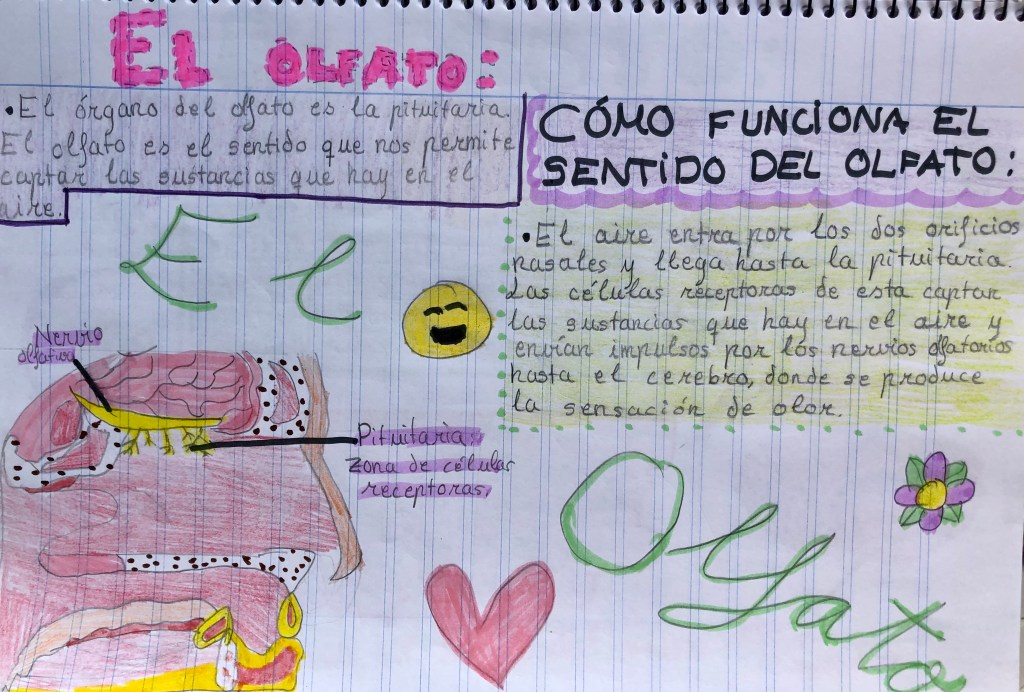 El OLFATO:
• El órgano del olfato es la pituitaria.
El olfato es el sentido que nos permite
captar las sustancias que hay en el
aire.
CÓMO FUNCIONA EL
SENTIDO DEL OLFATO:
• El aire entra por los dos orificios
nasales y llega hasta la pituitaria.
Las células receptoras de esta captar
las sustancias que hay en el aire y
envían impulsos por los nervios olfatorios
hasta el cerebro, donde se produce
la sensación de olor.
El
Nervio
olfativo
Pituitaria:
zona de células
receptoras.
Olfato